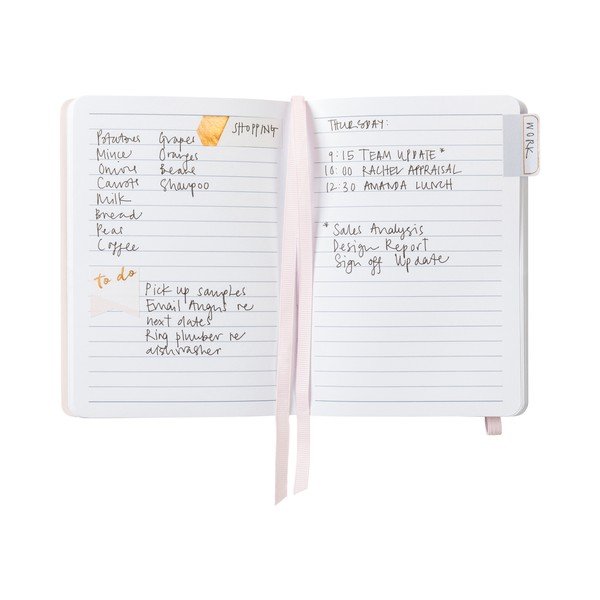 SHOPPING
Potatoes Grapes
Mince Oranges
Onions Beans
Carrots Shampoo
Milk
Bread
Peas
Coffee
to do
Pick up samples
Email Angus re
next dates
Ring plumber re
dishwasher
THURSDAY:
WORK
9:15 TEAM UPDATE*
10:00 RACHEL APPRAISAL
12:30 AMANDA LUNCH
*Sales Analysis
Design Report
Sign off Update